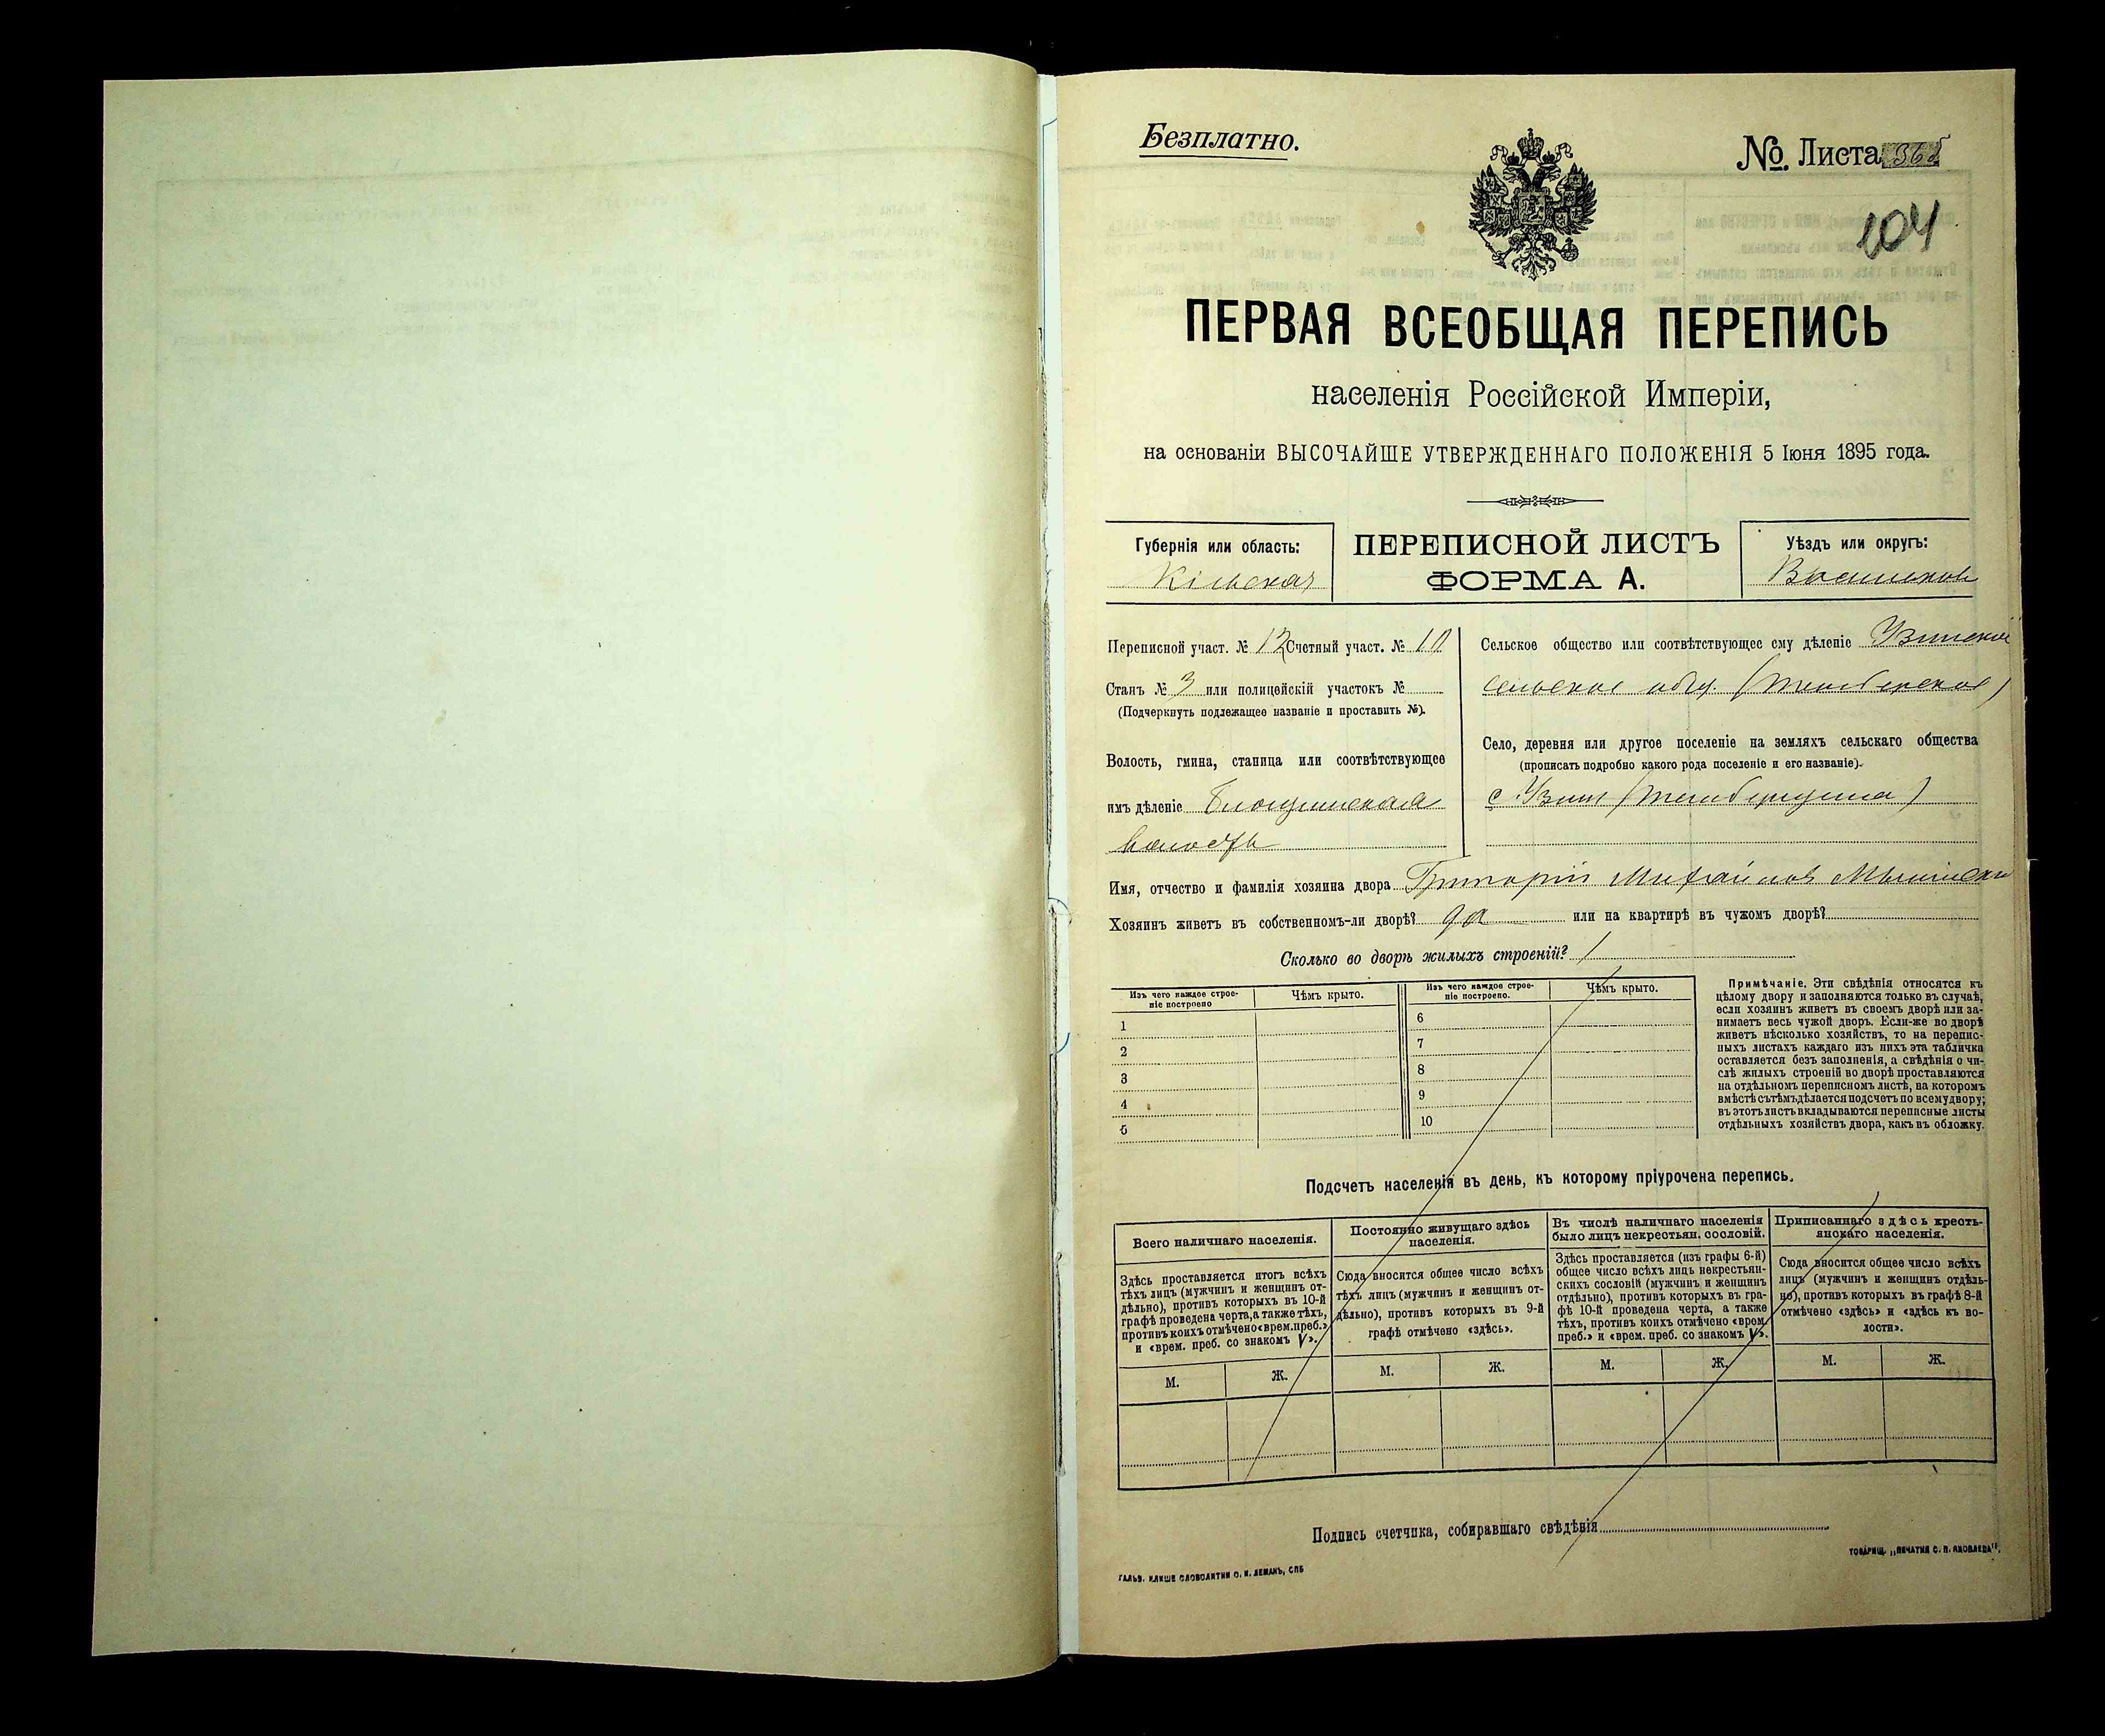 Безплатно.
№ Листа
104
ПЕРВАЯ ВСЕОБЩАЯ ПЕРЕПИСЬ
населенія Россійской Имперіи,
на основаніи ВЫСОЧАЙШЕ УТВЕРЖДЕННАГО ПОЛОЖЕНІЯ 5 Іюня 1895 года.
Губернія или область:
Кіевская
ПЕРЕПИСНОЙ ЛИСТЪ
ФОРМА А.
Уѣздъ или округъ:
Переписной участ. № 12 Счетный участ. № 10
Станъ № 3 или полицейскій участокъ №
(Подчеркнуть подлежащее названіе и проставить №).
Волость, гмина, станица или соотвѣтствующее
имъ дѣленіе
волость
Сельское общество или соотвѣтствующее ему дѣленіе Узинское
сельское общ.
Село, деревня или другое поселеніе на земляхъ сельскаго общества
(прописать подробно какого рода поселеніе и его названіе).
с. Узинъ
Имя, отчество и фамилія хозяина двора Григорій Михайловъ
Хозяинъ живетъ въ собственномъ-ли дворѣ? да или на квартирѣ въ чужомъ дворѣ?
Сколько во дворѣ жилыхъ строеній? 1
Изъ чего каждое строе-
ніе построено
Чѣмъ крыто.
1
2
3
4
5
Изъ чего каждое строе-
ніе построено.
Чѣмъ крыто.
6
7
8
9
10
Примѣчаніе. Эти свѣдѣнія относятся къ
цѣлому двору и заполняются только въ случаѣ,
если хозяинъ живетъ въ своемъ дворѣ или за-
нимаетъ весь чужой дворъ. Если-же во дворѣ
живетъ нѣсколько хозяйствъ, то на перепис-
ныхъ листахъ каждаго изъ нихъ эта табличка
оставляется безъ заполненія, а свѣдѣнія о чи-
слѣ жилыхъ строеній во дворѣ проставляются
на отдѣльномъ переписномъ листѣ, на которомъ
вмѣстѣ съ тѣмъ дѣлается подсчетъ по всему двору;
въ этотъ листъ вкладываются переписные листы
отдѣльныхъ хозяйствъ двора, какъ въ обложку.
Подсчетъ населенія въ день, къ которому пріурочена перепись.
Всего наличнаго населенія.
Здѣсь проставляется итогъ всѣхъ
тѣхъ лицъ (мужчинъ и женщинъ от-
дѣльно), противъ которыхъ въ 10-й
графѣ проведена черта, а также тѣхъ,
противъ коихъ отмѣчено «врем. преб.»
и «врем. преб. со знакомъ V».
М.
Ж.
Постоянно живущаго здѣсь
населенія.
Сюда вносится общее число всѣхъ
тѣхъ лицъ (мужчинъ и женщинъ от-
дѣльно), противъ которыхъ въ 9-й
графѣ отмѣчено «здѣсь».
М.
Ж.
Въ числѣ наличнаго населенія
было лицъ некрестьян. сословій.
Здѣсь проставляется (изъ графы 6-й)
общее число всѣхъ лицъ некрестьян-
скихъ сословій (мужчинъ и женщинъ
отдѣльно), противъ которыхъ въ гра-
фѣ 10-й проведена черта, а также
тѣхъ, противъ коихъ отмѣчено «врем.
преб.» и «врем. преб. со знакомъ V».
М.
Ж.
Приписаннаго здѣсь кресть-
янскаго населенія.
Сюда вносится общее число всѣхъ
лицъ (мужчинъ и женщинъ отдѣль-
но), противъ которыхъ въ графѣ 8-й
отмѣчено «здѣсь» и «здѣсь къ во-
лости».
М.
Ж.
Подпись счетчика, собиравшаго свѣдѣнія
ГАЛЬВ. КЛИШЕ СЛОВОЛИТНИ О. И. ЛЕМАНЪ, СПБ
ТОВАРИЩ. „ПЕЧАТНЯ С. П. ЯКОВЛЕВА“.